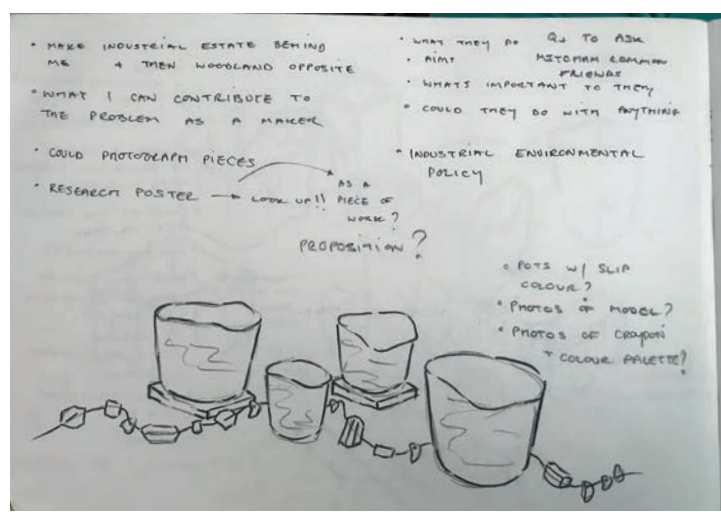 • MAKE INDUSTRIAL ESTATE BEHIND
ME + THEN WOODLAND OPPOSITE
• WHAT I CAN CONTRIBUTE TO
THE PROBLEM AS A MAKER
• COULD PHOTOGRAPH PIECES
• RESEARCH POSTER → LOOK UP!!
AS A
PIECE OF
WORK?
PROPOSITION?
Qs TO ASK
MITCHAM COMMON
FRIENDS
• WHAT THEY DO
• AIMS
• WHATS IMPORTANT TO THEM
• COULD THEY DO WITH ANYTHING
• INDUSTRIAL ENVIRONMENTAL
POLICY
• POTS W/ SLIP
COLOUR?
• PHOTOS OF MODEL?
• PHOTOS OF CROYDON
+ COLOUR PALETTE?